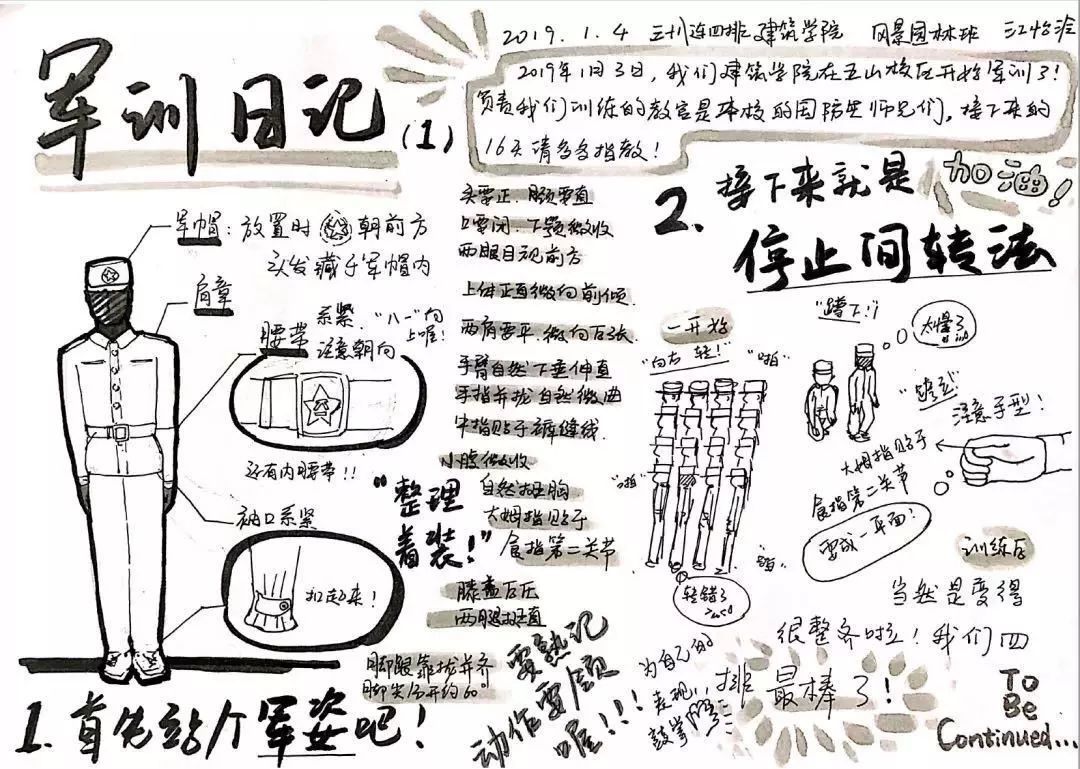 军训日记(1)
2019.1.4 三十八连四排建筑学院 风景园林班 江怡
2019年1月3日，我们建筑学院在五山校区开始军训了！
负责我们训练的教官是本校的国防生师兄们，接下来的
16天请多多指教！
加油！
军帽：放置时 朝前方
头发藏于军帽内
肩章
腰带
系紧，“八一”向上喔！
注意朝向
还有内腰带！！
袖口系紧
扣起来！
“整理
着装！”
1.首先站个军姿吧！
头要正.颈要直
口要闭.下颚微收
两眼目视前方
上体正直微向前倾.
两肩要平.微向后张.
手臂自然下垂伸直
手指并拢自然微曲
中指贴于裤缝线.
小腹微收
自然挺胸
大姆指贴于
食指第二关节
膝盖后压
两腿挺直
脚跟靠拢并齐
脚尖分开约60°
要熟记
动作要领
喔！！！
2.接下来就是
停止间转法
一开始
“向右 转！”
“啪”
“啪”
“啪”
转错了
“蹲下！”
太慢了
注意手型！
大姆指贴于
食指第二关节
要成一平面！
训练后
当然是变得
很整齐啦！我们四
排 最棒了！
为自己的
表现
鼓掌
To
Be
Continued...